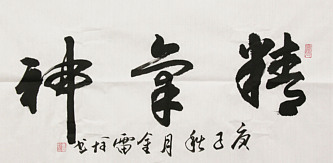 精氣神
庚子秋月金雷书